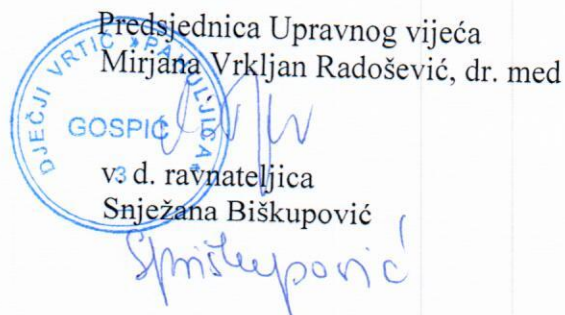 Predsjednica Upravnog vijeća
Mirjana Vrkljan Radošević, dr. med
DJEČJI VRTIĆ »PAHULJICA«
GOSPIĆ
3
v. d. ravnateljica
Snježana Biškupović
SBiškupović